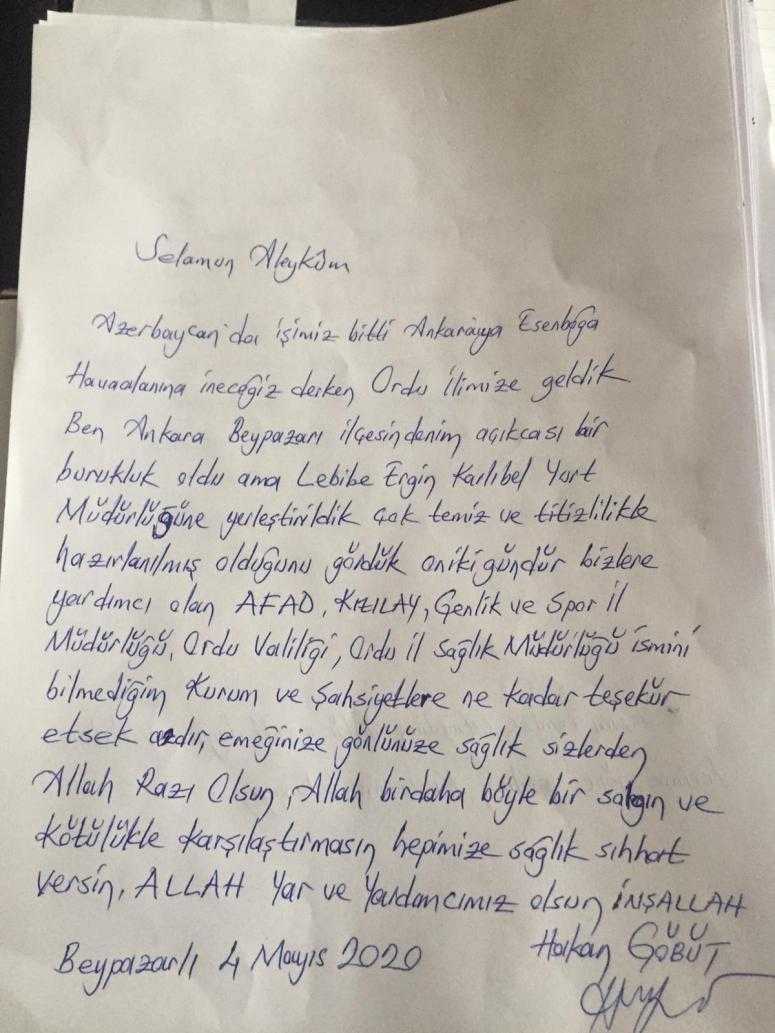 Selamun Aleyküm
Azerbaycan'da işimiz bitti Ankaraya Esenboğa
Havaalanına ineceğiz derken Ordu ilimize geldik
Ben Ankara Beypazarı ilçesindenim açıkcası bir
burukluk oldu ama Lebibe Ergin Karlıbel Yurt
Müdürlüğüne yerleştirildik çok temiz ve titizlilikle
hazırlanılmış olduğunu gördük oniki gündür bizlere
yardımcı olan AFAD, KIZILAY, Genlik ve Spor il
Müdürlüğü, Ordu Valiliği, Ordu il Sağlık Müdürlüğü ismini
bilmediğim Kurum ve Şahsiyetlere ne kadar teşekür
etsek azdır, emeğinize gönlünüze sağlık sizlerden
Allah Razı Olsun, Allah birdaha böyle bir salgın ve
kötülükle karşılaştırmasın hepimize sağlık sıhhat
versin, ALLAH Yar ve Yardımcımız olsun İNŞALLAH
Beypazarlı 4 Mayıs 2020 Hakan GÖBÜT